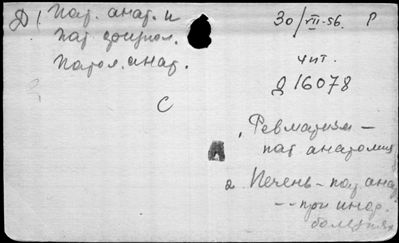 Д! Пат. анат. и
пат. физиол.
Патол. анат.
С
30/VII-56. Р
чит.
Д 16078
1 Ревматизм –
пат анатомия
2 Печень – пат ана
-- при инф.
болезнях